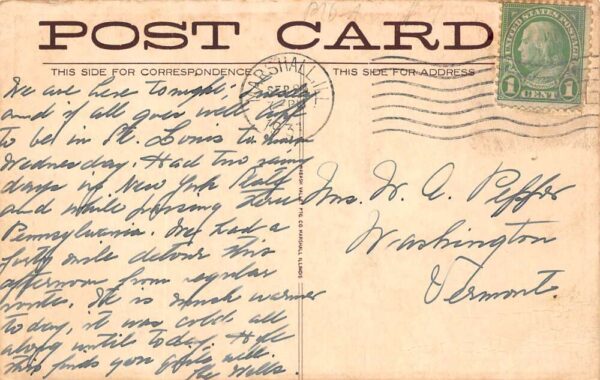 POST CARD
THIS SIDE FOR CORRESPONDENCE
THIS SIDE FOR ADDRESS
UNITED STATES POSTAGE
1 CENT 1
MARSHALL, ILL.
We are here tonight, Tuesday
and if all goes well hope
to be in St. Louis to
Wednesday. Had two rainy
days in New York State
and while passing thru
Pennsylvania. We had a
forty mile detour this
afternoon from regular
route. It is much warmer
today, it was cold all
along until today. Hope
this finds you quite well.
The Wells.
Mrs. W. A. Peffer
Washington
Vermont.